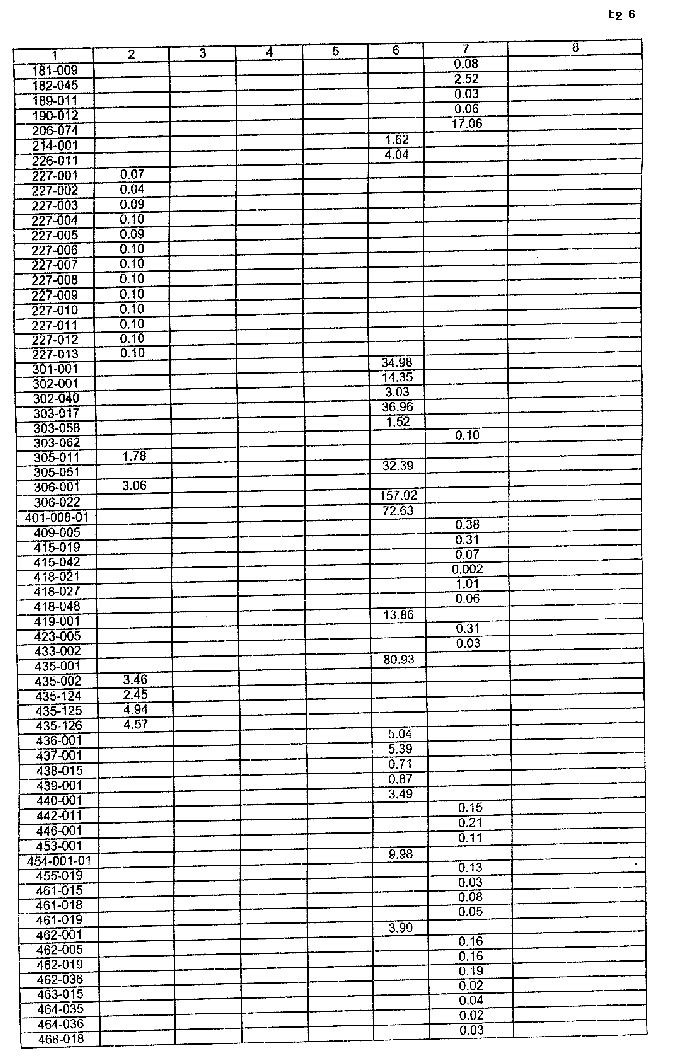 tg 6
1 2 3 4 5 6 7 8
181-009 0.08
182-045 2.52
189-011 0.03
190-012 0.06
206-074 17.06
214-001 1.62
226-011 4.04
227-001 0.07
227-002 0.04
227-003 0.09
227-004 0.10
227-005 0.09
227-006 0.10
227-007 0.10
227-008 0.10
227-009 0.10
227-010 0.10
227-011 0.10
227-012 0.10
227-013 0.10
301-001 34.98
302-001 14.35
302-040 3.03
303-017 36.96
303-058 1.52
303-062 0.10
305-011 1.78
305-051 32.39
306-001 3.06
306-022 157.02
401-006-01 72.63
409-005 0.38
415-019 0.31
415-042 0.07
418-021 0.002
418-027 1.01
418-048 0.06
419-001 13.86
423-005 0.31
433-002 0.03
435-001 80.93
435-002 3.46
435-124 2.45
435-125 4.94
435-126 4.57
436-001 5.04
437-001 5.39
438-015 0.71
439-001 0.87
440-001 3.49
442-011 0.15
446-001 0.21
453-001 0.11
454-001-01 9.98
455-019 0.13
461-015 0.03
461-018 0.08
461-019 0.05
462-001 3.90
462-005 0.16
462-019 0.16
462-036 0.19
463-015 0.02
464-035 0.04
464-036 0.02
468-018 0.03